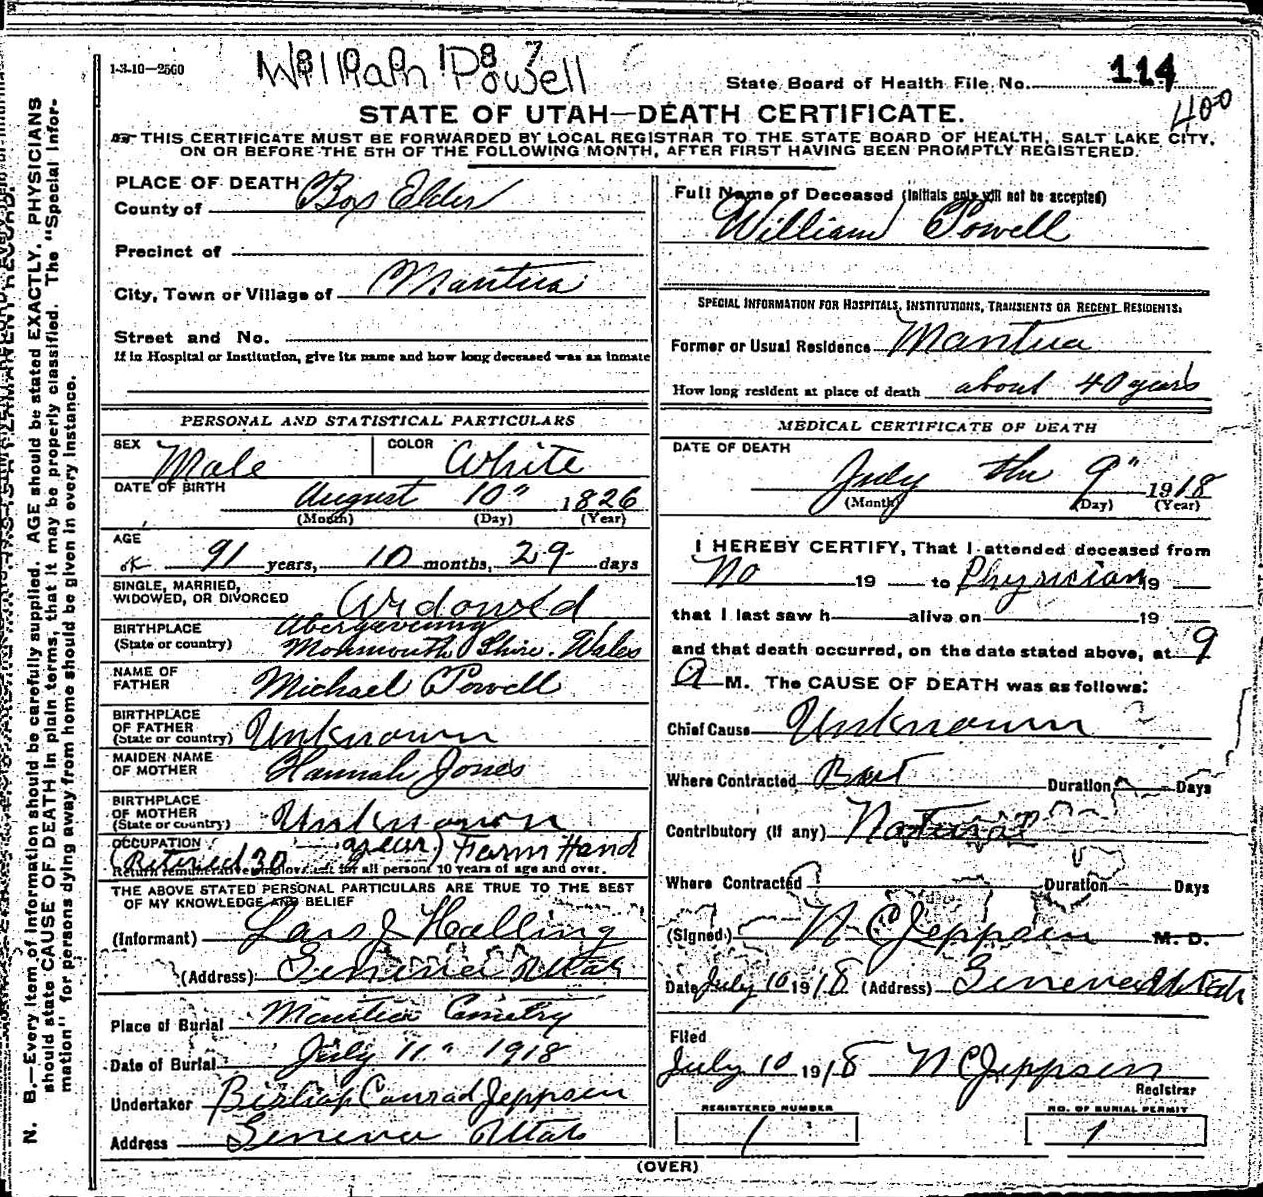 1-3-10-2560
William Powell
State Board of Health File No. 114
400
STATE OF UTAH—DEATH CERTIFICATE.
THIS CERTIFICATE MUST BE FORWARDED BY LOCAL REGISTRAR TO THE STATE BOARD OF HEALTH, SALT LAKE CITY,
ON OR BEFORE THE 5TH OF THE FOLLOWING MONTH, AFTER FIRST HAVING BEEN PROMPTLY REGISTERED.
N. B.—Every item of information should be carefully supplied. AGE should be stated EXACTLY. PHYSICIANS
should state CAUSE OF DEATH in plain terms, that it may be properly classified. The "Special Infor-
mation" for persons dying away from home should be given in every instance.
PLACE OF DEATH
County of Box Elder
Precinct of
City, Town or Village of Mantua
Street and No.
If in Hospital or Institution, give its name and how long deceased was an inmate
PERSONAL AND STATISTICAL PARTICULARS
SEX Male COLOR White
DATE OF BIRTH August 10" 1826
(Month) (Day) (Year)
AGE
ok 91 years, 10 months, 29 days
SINGLE, MARRIED,
WIDOWED, OR DIVORCED Widowed
BIRTHPLACE Abergavenny
(State or country) Monmouth Shire. Wales
NAME OF
FATHER Michael Powell
BIRTHPLACE
OF FATHER
(State or country) Unknown
MAIDEN NAME
OF MOTHER Hannah Jones
BIRTHPLACE
OF MOTHER
(State or country) Unknown
OCCUPATION
(Retired 30 year) Farm Hand
Return remunerative employment for all persons 10 years of age and over.
THE ABOVE STATED PERSONAL PARTICULARS ARE TRUE TO THE BEST
OF MY KNOWLEDGE AND BELIEF
(Informant) Lars J Halling
(Address) Geneva Utah
Place of Burial Mantua Cemetry
Date of Burial July 11" 1918
Undertaker Bishop Conrad Jeppsen
Address Geneva Utah
Full Name of Deceased (Initials only will not be accepted)
William Powell
SPECIAL INFORMATION FOR HOSPITALS, INSTITUTIONS, TRANSIENTS OR RECENT RESIDENTS:
Former or Usual Residence Mantua
How long resident at place of death about 40 years
MEDICAL CERTIFICATE OF DEATH
DATE OF DEATH
July the 9" 1918
(Month) (Day) (Year)
I HEREBY CERTIFY, That I attended deceased from
No 19 to Physician 19
that I last saw h alive on 19
and that death occurred, on the date stated above, at 9
A M. The CAUSE OF DEATH was as follows:
Chief Cause Unknown
Where Contracted But Duration Days
Contributory (if any) Natural
Where Contracted Duration Days
(Signed) N C Jeppsen M. D.
Date July 10 1918 (Address) Geneva Utah
Filed
July 10 1918 N C Jeppsen
Registrar
REGISTERED NUMBER
1
NO. OF BURIAL PERMIT
1
(OVER)